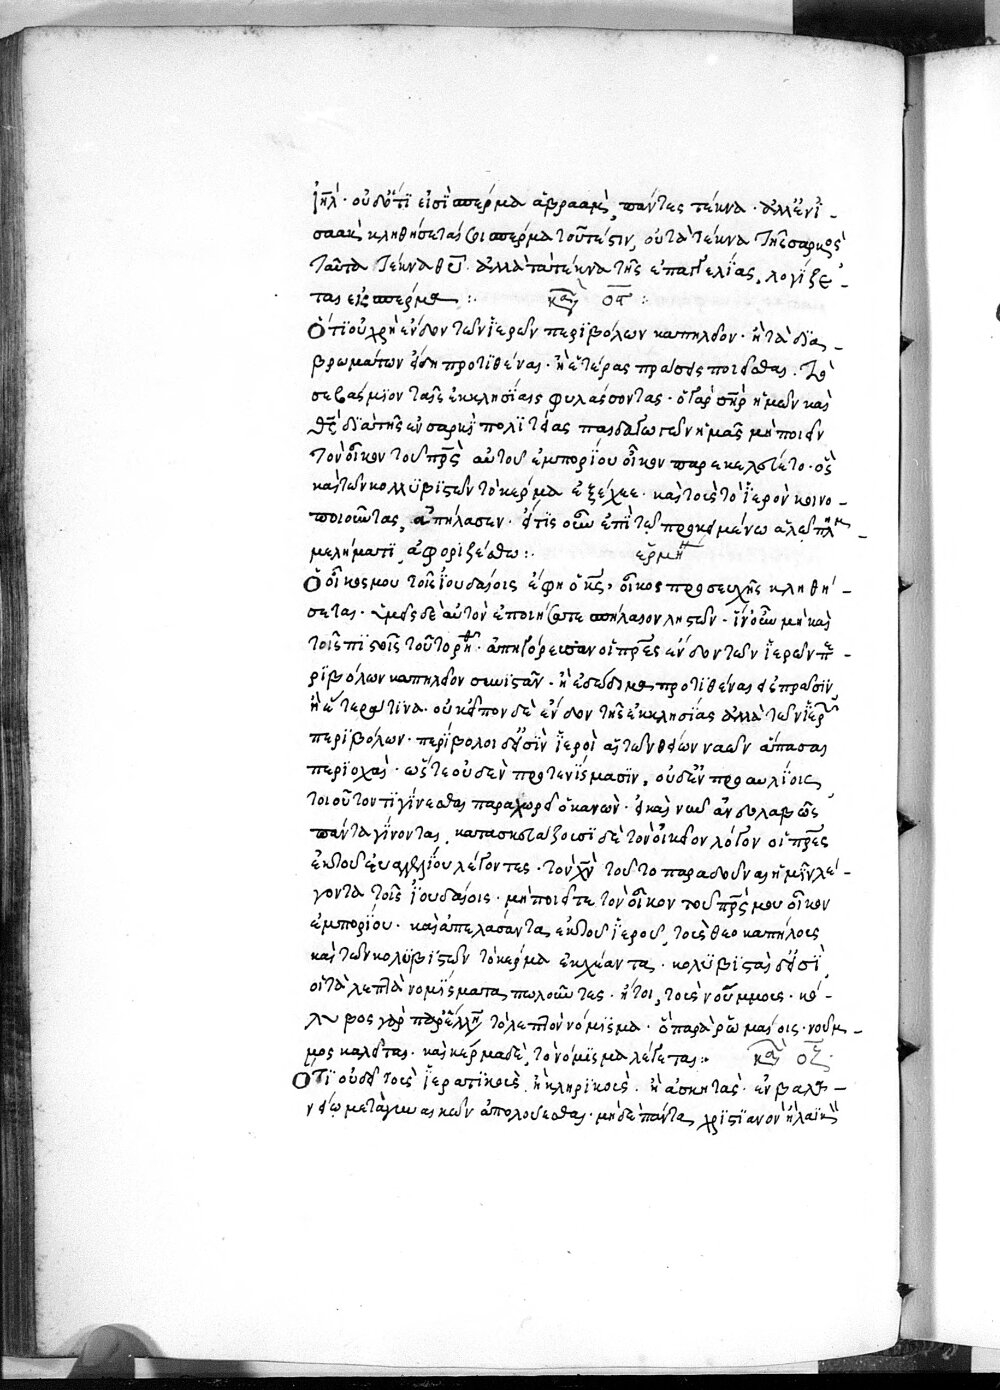 ἰηλ· οὐδότι εἰσὶ σπέρμα ἀβραὰμ, πάντες τέκνα· ἀλλ' ἐν ἰ-
σαὰκ κληθήσεταί σοι σπέρμα τουτέστιν, οὐ τὰ τέκνα τῆς σαρκὸς
ταῦτα τέκνα θυ· ἀλλὰ τὰ τέκνα τῆς ἐπαγγελίας, λογίζε-
ται εἰς σπέρμα :· κα οϛ :·
Ὅτι οὐ χρὴ ἔνδον τῶν ἱερῶν περιβόλων καπηλεῖον· ἢ τὰ διὰ
βρωμάτων εἴδη προτιθέναι· ἢ ἑτέρας πράσεις ποιεῖσθαι. τὸ
σεβάσμιον ταῖς ἐκκλησίαις φυλάσσοντας· ὁ γὰρ σηρ ἡμῶν καὶ
θς διὰ τῆς ἐν σαρκὶ πολιτείας παιδαγωγῶν ἡμᾶς μὴ ποιεῖν
τὸν οἶκον τοῦ πρς αὐτοῦ ἐμπορίου οἶκον παρεκελεύετο· ὃς
καὶ τῶν κολλυβιστῶν τὸ κέρμα ἐξέχεε· καὶ τοὺς τὸ ἱερὸν κοινο-
ποιοῦντας, ἀπήλασεν· εἴ τις οὖν ἐπὶ τῷ προκειμένω ἁλῷ πλημ-
μελήματι, ἀφοριζέσθω :· ἑρμη
Ὁ οἶκος μου τοῖς ἰουδαίοις ἔφη ὁ κς, οἶκος προσευχῆς κληθή-
σεται· ὑμεῖς δὲ αὐτὸν ἐποιήσατε σπήλαιον ληστῶν· ἵν' οὖν μὴ καὶ
τοῖς πιστοῖς τοῦτο ρηθῆ· ἀπηγόρευσαν οἱ πρες ἔνδον τῶν ἱερῶν πε-
ριβόλων καπηλεῖον συνιστᾶν· ἢ ἐδώδιμα προτιθέναι εἰς πρᾶσιν
ἢ ἕτερά τινα· οὐκ εἶπον δὲ ἔνδον τῆς ἐκκλησίας ἀλλὰ τῶν ἱερῶν
περιβόλων· περίβολοι δέ εἰσιν ἱεροὶ αἱ τῶν θείων ναῶν ἅπασαι
περιοχαί· ὥστε οὐδὲν προτενίσμασιν, οὐδὲν προαυλίοις,
τοιοῦτόν τι γίνεσθαι παραχωρεῖ ὁ κανών· εἰ καὶ νῦν ἀνευλαβῶς
πάντα γίνονται, κατασκευάζουσι δὲ τὸν οἰκεῖον λόγον οἱ πρες
ἐκ τοῦ εὐαγγελίου λέγοντες· τὸν χν τοῦτο παραδοῦναι ἡμῖν λέ-
γοντα τοῖς ἰουδαίοις· μὴ ποιεῖτε τὸν οἶκον τοῦ πρς μου οἶκον
ἐμπορίου· καὶ ἀπελάσαντα ἐκ τοῦ ἱεροῦ, τοὺς θεοκαπήλους
καὶ τῶν κολυβιστῶν τὸ κέρμα ἐκχέαντα· κολυβισταὶ δέ εἰσι,
οἱ τὰ λεπτὰ νομίσματα πωλοῦντες· ἤτοι, τοὺς νούμμους· κό-
λυβος γὰρ παρ' ἕλλησι, τὸ λεπτὸν νόμισμα· ὃ παρὰ ῥωμαίοις· νοῦμ-
μος καλεῖται· καὶ κέρμα δὲ, τὸ νόμισμα λέγεται :· κα οζ·
Ὅτι οὐ δεῖ τοὺς ἱερατικοὺς, ἢ κληρικοὺς· ἢ ἀσκητὰς· ἐν βαλα-
νείῳ μετὰ γυναικῶν ἀπολούεσθαι· μηδὲ πάντα χριστιανὸν ἢ λαϊκὸν